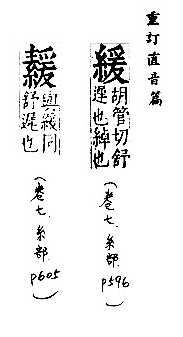 重訂直音篇
緩 胡管切舒
遲也綽也
(卷七.糸部.
p596)
與緩同
舒遲也
(卷七.糸部.
p605)